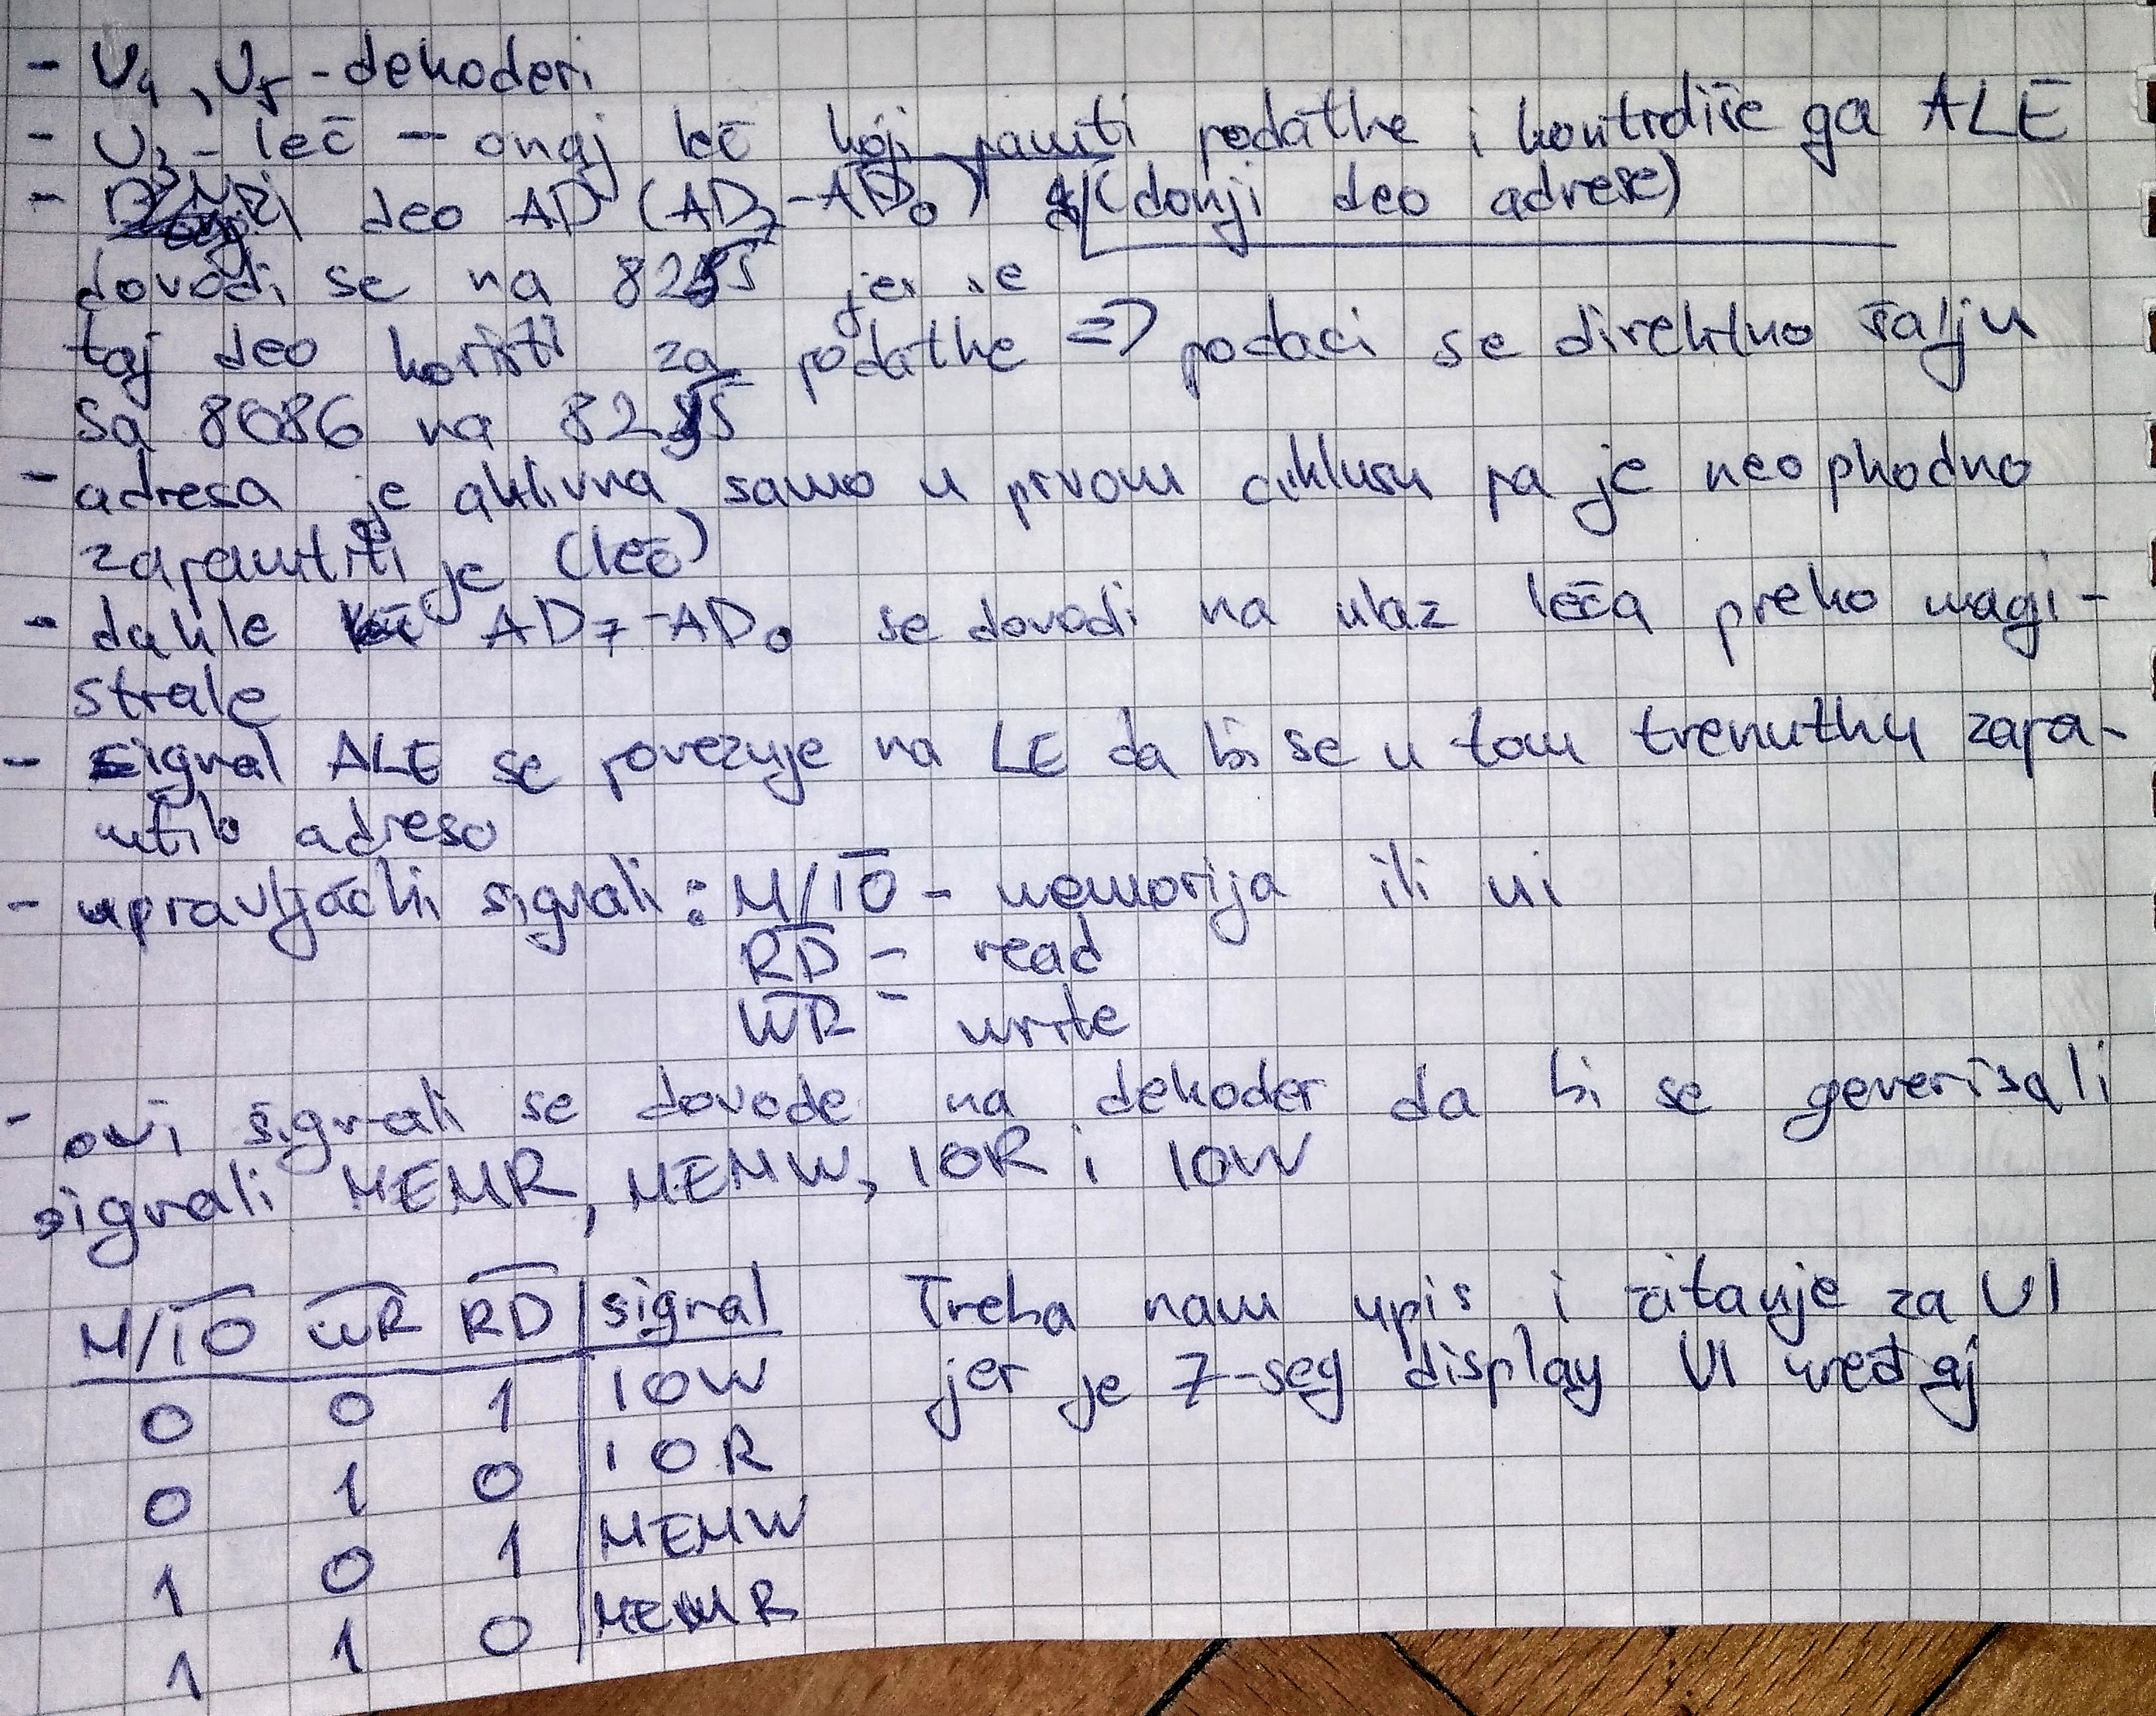 - U4, U5 - dekoderi
- U3 - leč - onaj leč koji pamti podatke i kontroliše ga ALE
- Donji deo AD (AD7-AD0) (donji deo adrese)
dovodi se na 8255 jer se
taj deo koristi za podatke => podaci se direktno šalju
sa 8086 na 8255
- adresa je aktivna samo u prvom ciklusu pa je neophodno
zapamtiti je (leč)
- dakle AD7-AD0 se dovodi na ulaz leča preko magi-
strale
- signal ALE se povezuje na LE da bi se u tom trenutku zapa-
mtila adresa
- upravljački signali: M/I̅O̅ - memorija ili ui
R̅D̅ - read
W̅R̅ - write
- ovi signali se dovode na dekoder da bi se generisali
signali MEMR, MEMW, IOR i IOW
M/I̅O̅ W̅R̅ R̅D̅ | signal
0 0 1 | IOW
0 1 0 | IOR
1 0 1 | MEMW
1 1 0 | MEMR
Treba nam upis i čitanje za UI
jer je 7-seg display UI uređaj